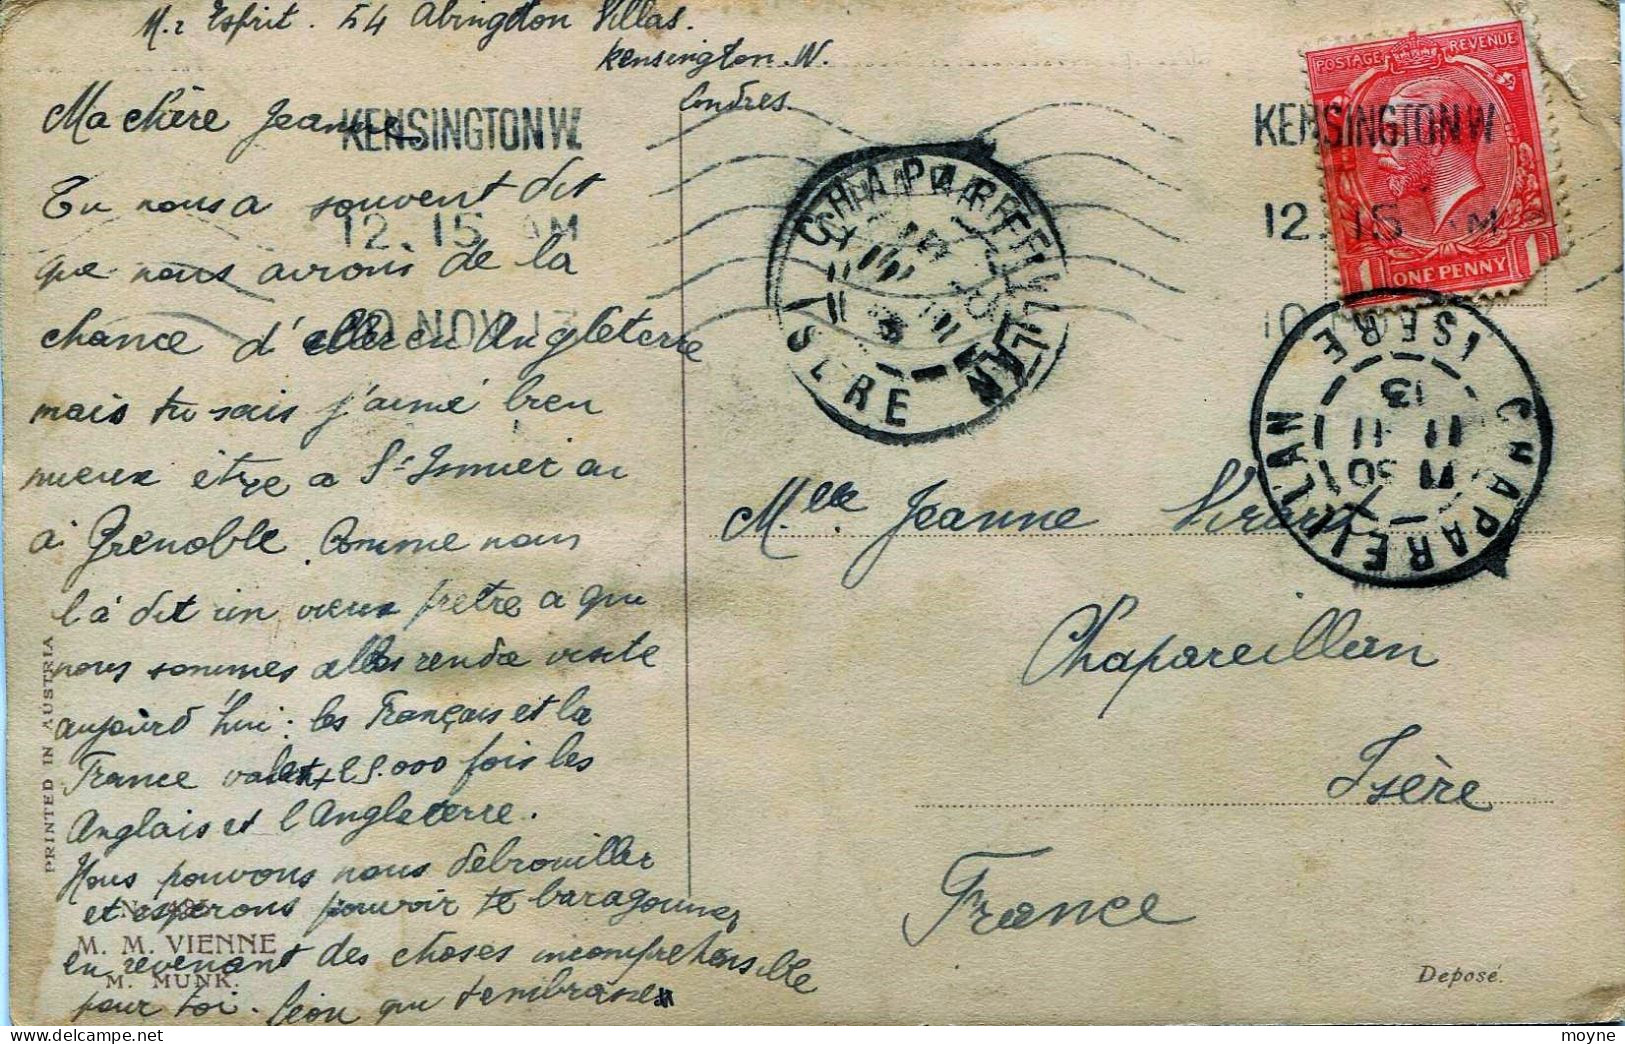 M.r Esprit. 54 Abingdon Villas.
Kensington. W.
Londres.
Ma chère Jeanne
Tu nous a souvent dit
que nous avions de la
chance d'aller en Angleterre
mais tu sais j'aime bien
mieux être a St Ismier ou
à Grenoble. Comme nous
l'à dit un vieux prêtre a qui
nous sommes allés rendre visite
aujourd'hui: les Français et la
France valent 25.000 fois les
Anglais et l'Angleterre.
Nous pouvons nous débrouiller
et esperons pouvoir te baragouiner
en revenant des choses incompréhensible
pour toi. Léon qui t'embrasse
KENSINGTON W.
12. 15 AM
10 NOV 13
KENSINGTON W
12. 15 AM
10
POSTAGE REVENUE
1 ONE PENNY 1
CHAPAREILLAN
ISERE
CHAPAREILLAN
11 11
13
ISERE
Mlle Jeanne
Chapareillan
Isère
France
PRINTED IN AUSTRIA
M. M. VIENNE
M. MUNK.
Deposé.
moyne